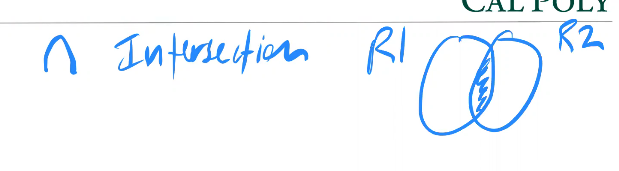 CAL POLY
∩ Intersection R1 R2